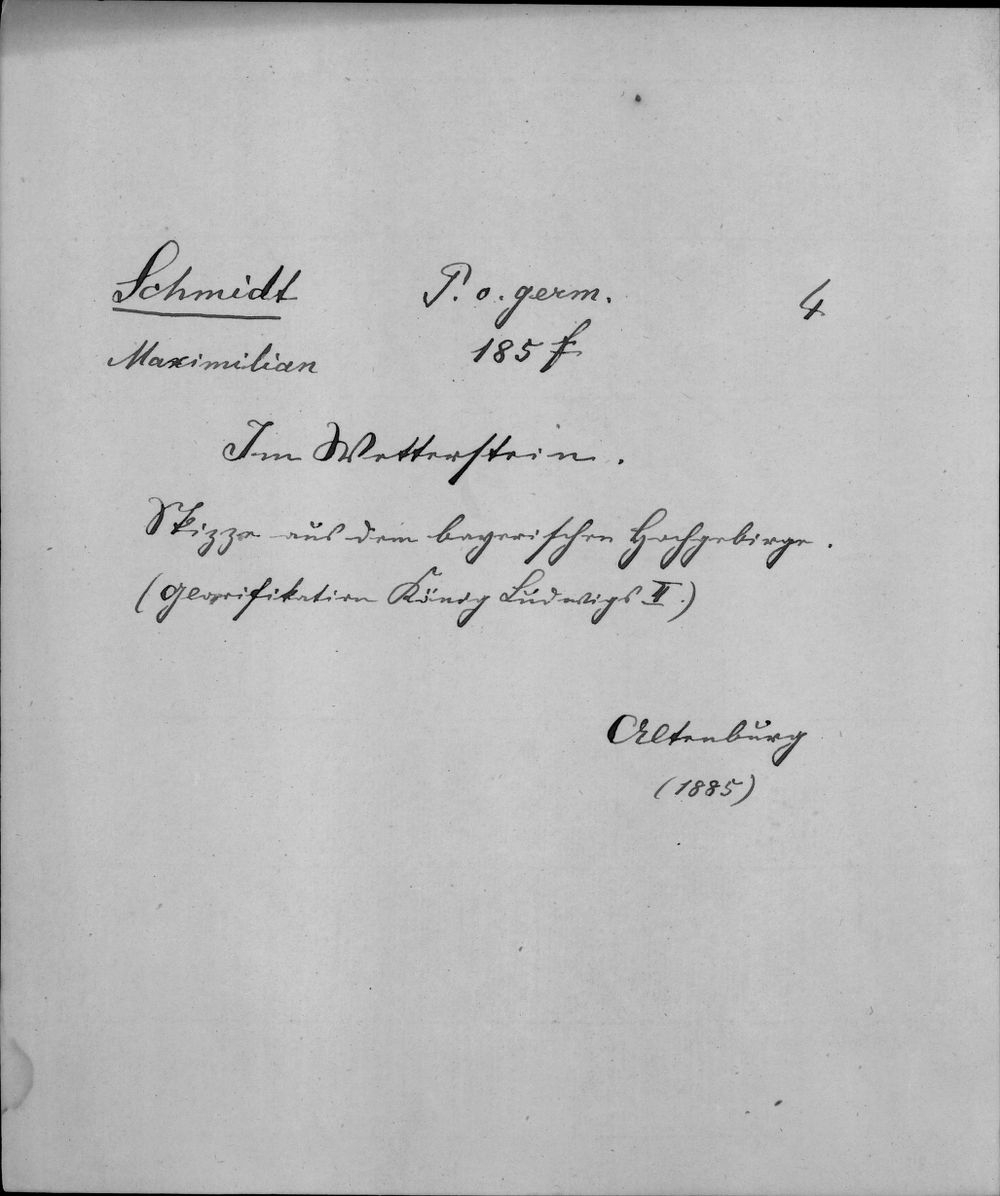 Schmidt P. o. germ. 4
Maximilian 185 f
Im Wetterstein.
Skizze aus dem bayerischen Hochgebirge.
(Glorifikation König Ludwigs II.)
Altenburg
(1885)